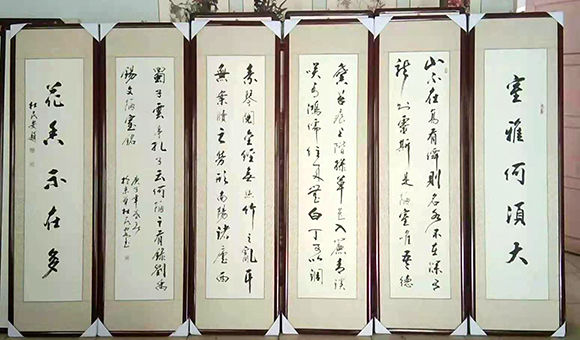 室雅何須大
山不在高有僊則名水不在深有
龍則靈斯是陋室惟吾德
馨苔痕上階綠草色入簾青談
笑有鴻儒往來無白丁可以調
素琴閱金經無絲竹之亂耳
無案牘之勞形南陽諸廬西
蜀子雲亭孔子云何陋之有錄劉禹
錫文陋室銘
庚子年
花香不在多